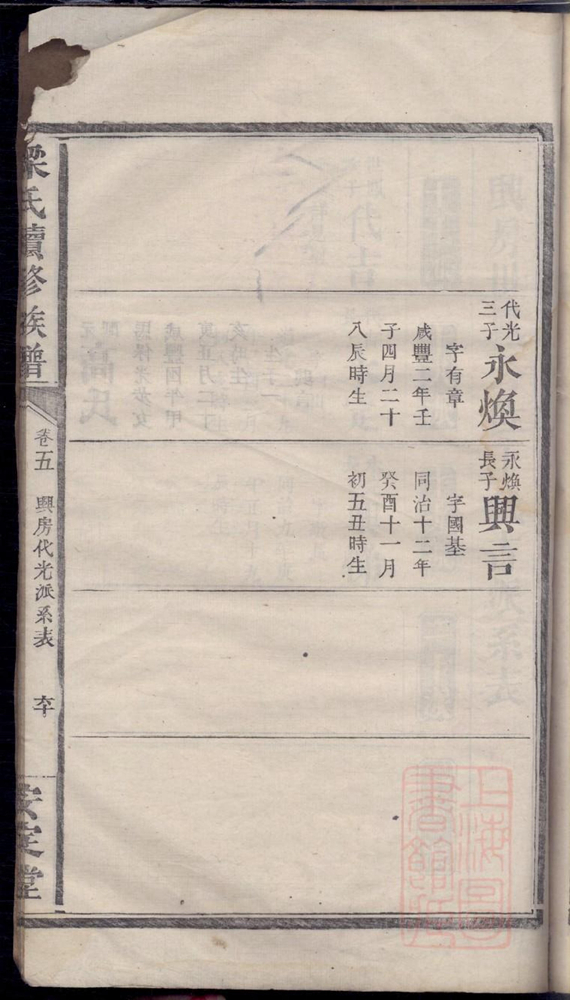 代光
三子
永煥
字有章
咸豐二年壬
子四月二十
八辰時生
永煥
長子
興言
字國基
同治十二年
癸酉十一月
初五丑時生
梁氏續修族譜
卷五
興房代光派系表
安定堂
上海圖
書館藏